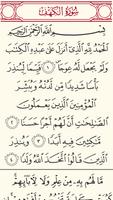 سُورَةُ الْكَهْفِ
بِسْمِ اللَّهِ الرَّحْمَٰنِ الرَّحِيمِ
الْحَمْدُ لِلَّهِ الَّذِي أَنزَلَ عَلَىٰ عَبْدِهِ الْكِتَابَ
وَلَمْ يَجْعَل لَّهُ عِوَجًا ۜ ١ قَيِّمًا لِّيُنذِرَ
بَأْسًا شَدِيدًا مِّن لَّدُنْهُ وَيُبَشِّرَ
الْمُؤْمِنِينَ الَّذِينَ يَعْمَلُونَ
الصَّالِحَاتِ أَنَّ لَهُمْ أَجْرًا حَسَنًا
٢ مَّاكِثِينَ فِيهِ أَبَدًا ٣ وَيُنذِرَ
الَّذِينَ قَالُوا اتَّخَذَ اللَّهُ وَلَدًا ٤
مَّا لَهُم بِهِ مِنْ عِلْمٍ وَلَا لِآبَائِهِمْ